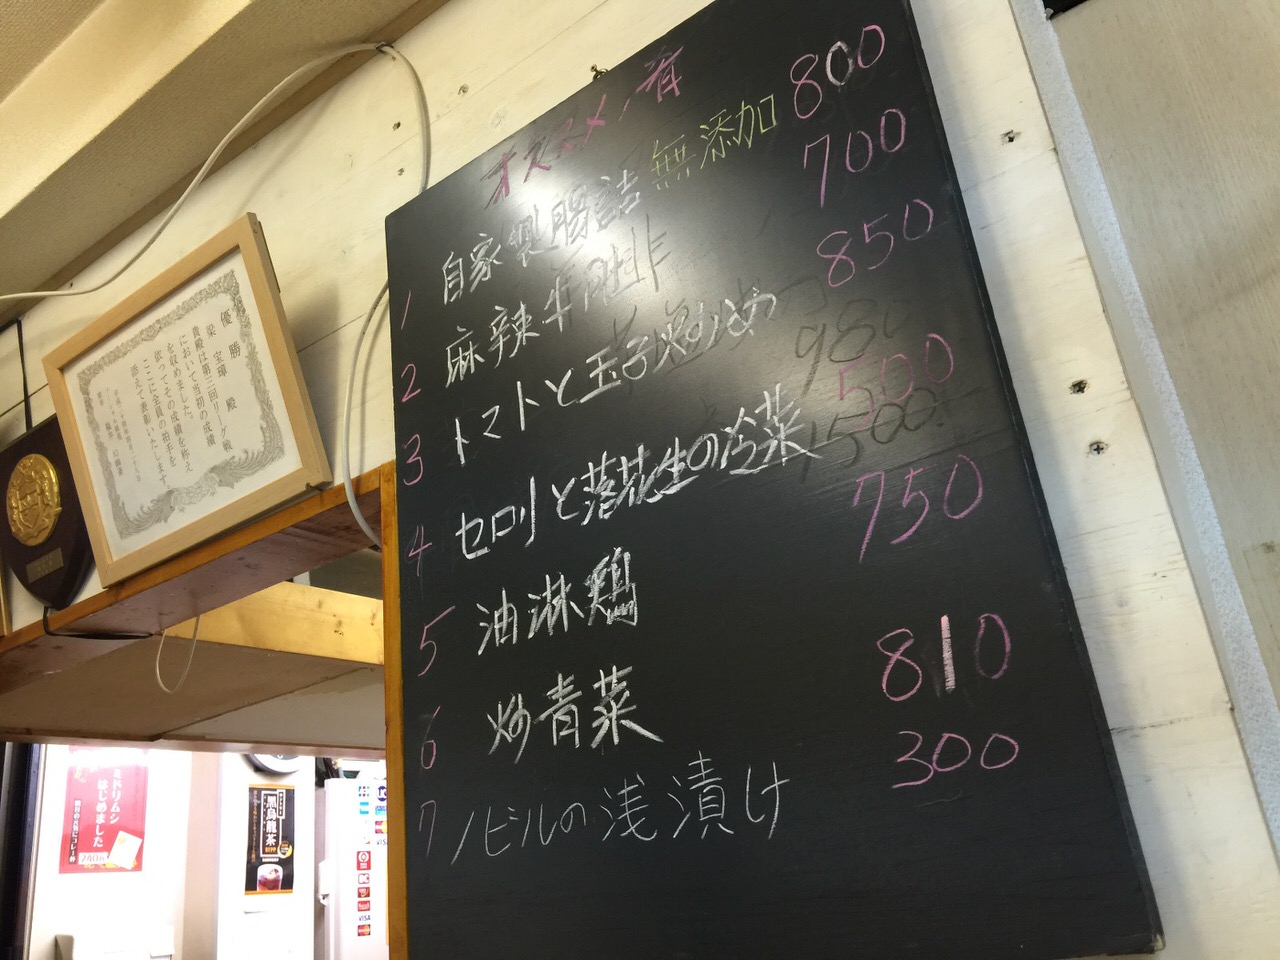 オススメノ肴
1 自家製腸詰 無添加 800
2 麻辣牛肚排 700
3 トマトと玉子炒め 850
980
4 セロリと落花生の冷菜 500
1500
5 油淋鶏 750
6 炒青菜 810
7 ノビルの浅漬け 300
優勝
梁宝璋 殿
貴殿は第三回リーグ戦
において当初の成績
を収めました。
依ってその成績を称え
ここに全員の拍手を
添えて表彰いたします
ミドリムシ
はじめました
黒烏龍茶
VISA
VISA